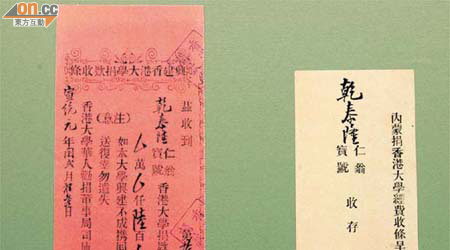 on.cc
東方互動
興建香港大學捐欵收條
茲收到
乾泰陸 仁翁 寶號 香港大學捐
萬 仟陸百
(注意)
如本大學興建不成捐
送復幸勿遺失
香港大學華人勸捐董事局司
宣統元年閏 月 日
內蒙捐香港大學經費收條呈
乾泰陸 仁翁 寶號 收存